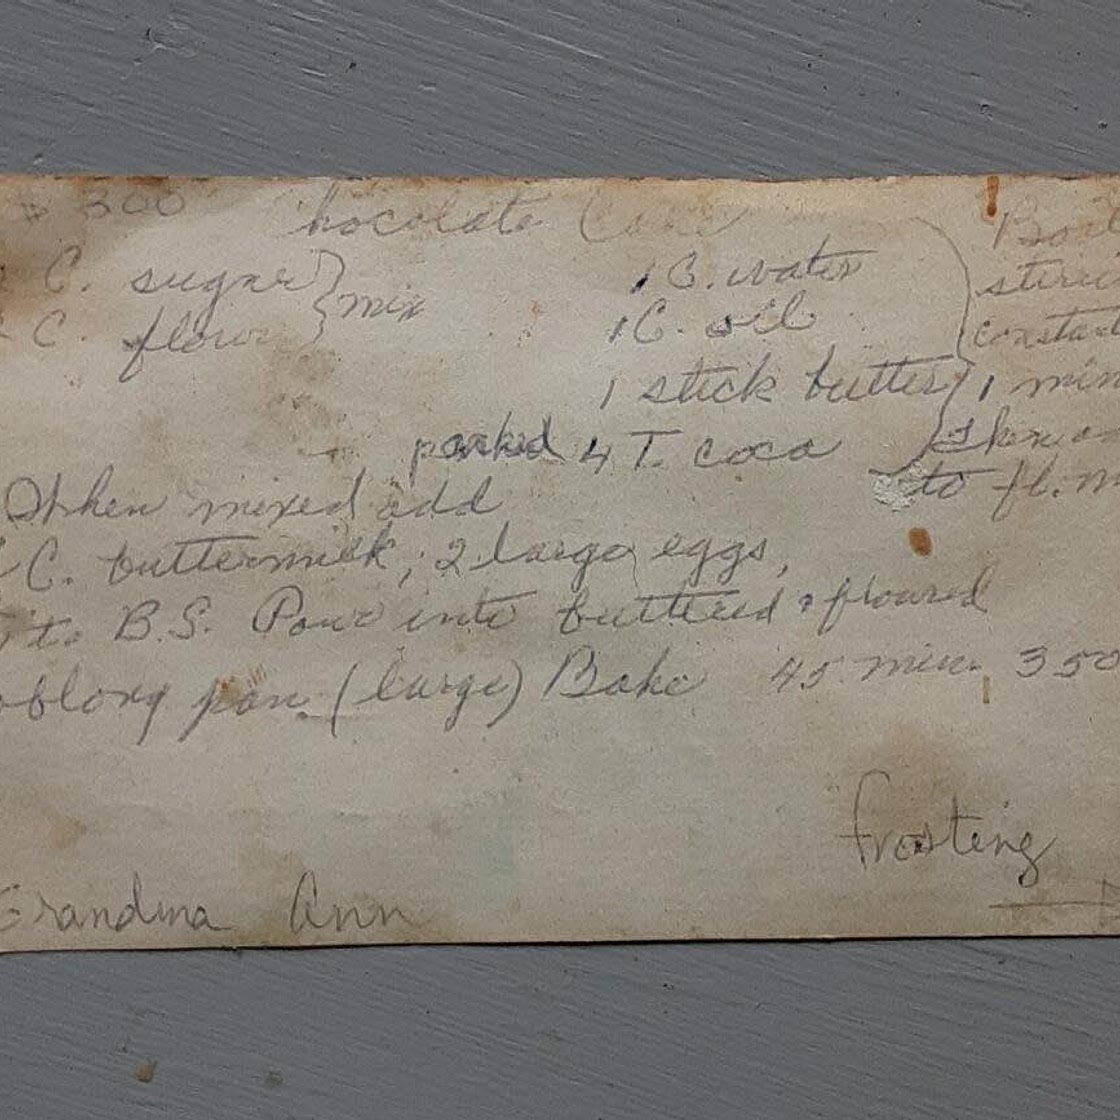 300 hocolate Cake
C. sugar } mix
C. flour
1 C. water
1 C. oil
1 stick butter
packed 4 T. coca
Boil
stirri
constan
1 min
then a
to fl. m
When mixed add
C. buttermilk, 2 large eggs,
to B.S. Pour into buttered & floured
oblong pan (large) Bake 45 min. 350
frosting
Grandma Ann